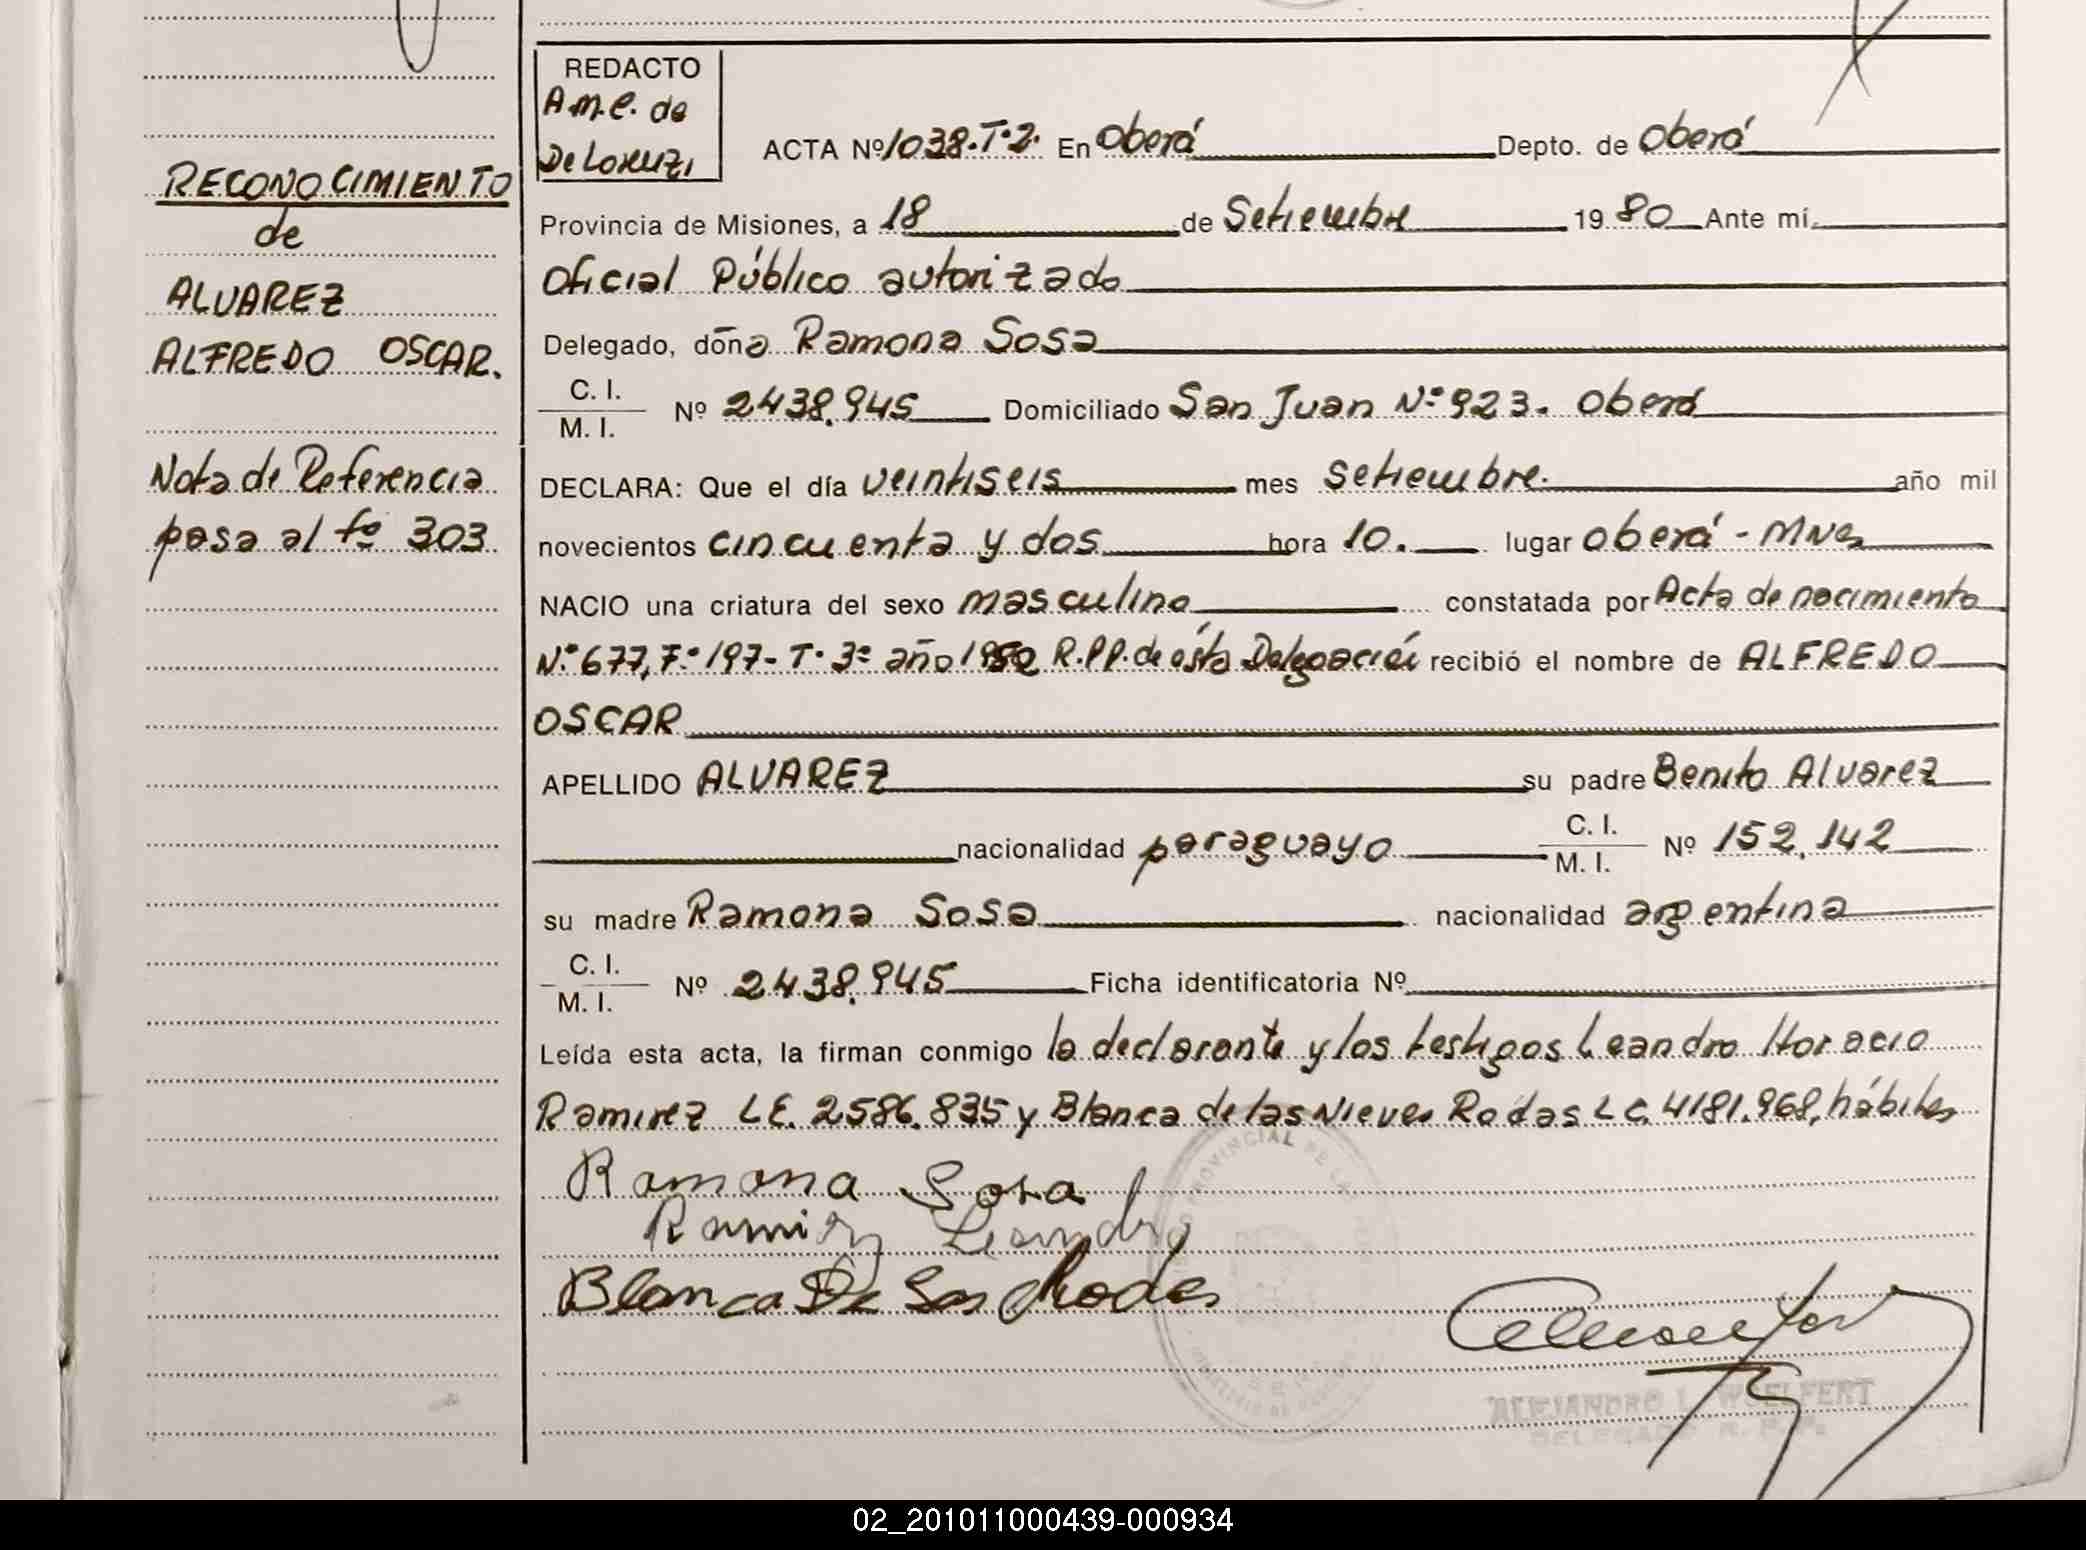 RECONOCIMIENTO
de
ALVAREZ
ALFREDO OSCAR.
Nota de Referencia
pasa al fº 303
REDACTO
A.M.C. de
De Lorenzi
ACTA Nº 1038.T.2. En Oberá Depto. de Oberá
Provincia de Misiones, a 18 de Setiembre 1980 Ante mí,
Oficial Público autorizado
Delegado, doña Ramona Sosa
C. I.
M. I. Nº 2438.945 Domiciliado San Juan Nº 923. Oberá
DECLARA: Que el día veintiseis mes setiembre. año mil
novecientos cincuenta y dos hora 10. lugar Oberá - Mnes
NACIO una criatura del sexo masculino constatada por Acta de nacimiento
Nº 677, Fº 197- T. 3º año 1952 R.P.P. de ésta Delegación recibió el nombre de ALFREDO
OSCAR
APELLIDO ALVAREZ su padre Benito Alvarez
nacionalidad paraguayo C. I.
M. I. Nº 152.142
su madre Ramona Sosa nacionalidad argentina
C. I.
M. I. Nº 2438.945 Ficha identificatoria Nº
Leída esta acta, la firman conmigo la declarante y los testigos Leandro Horacio
Ramirez L.E. 2586.835 y Blanca de las Nieves Rodas L.C. 4181.968, hábiles
Ramona Sosa
Ramirez Leandro
Blanca De Las Rodas
ALEJANDRO L. WOELFERT
DELEGADO R. P. P.
02_201011000439-000934